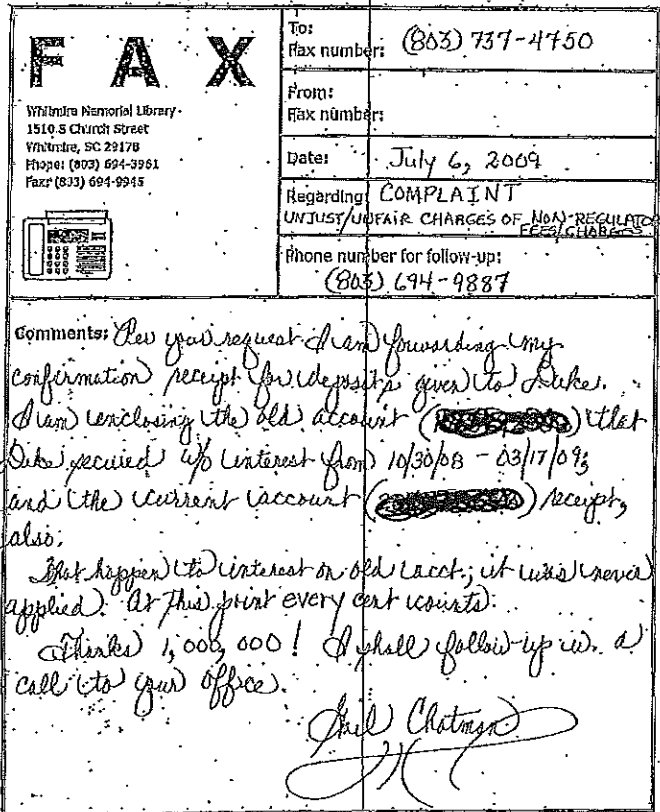 FAX
Whitmire Memorial Library
1510 S Church Street
Whitmire, SC 29178
Phone: (803) 694-3961
Fax: (803) 694-9945
To:
Fax number: (803) 737-4750
From:
Fax number:
Date: July 6, 2009
Regarding: COMPLAINT
UNJUST/UNFAIR CHARGES OF NON-REGULATO
FEES/CHARGES
Phone number for follow-up:
(803) 694-9887
Comments: Per your request I am forwarding my
confirmation receipt for deposits given to Duke.
I am enclosing the old account ( ) that
Duke received w/o interest from 10/30/08 - 03/17/09;
and the current account ( ) receipt,
also.
What happen to interest on old acct.; it was never
applied. At this point every cent counts.
Thanks 1,000,000! I shall follow-up w. a
call to your office.
Gail Chatman